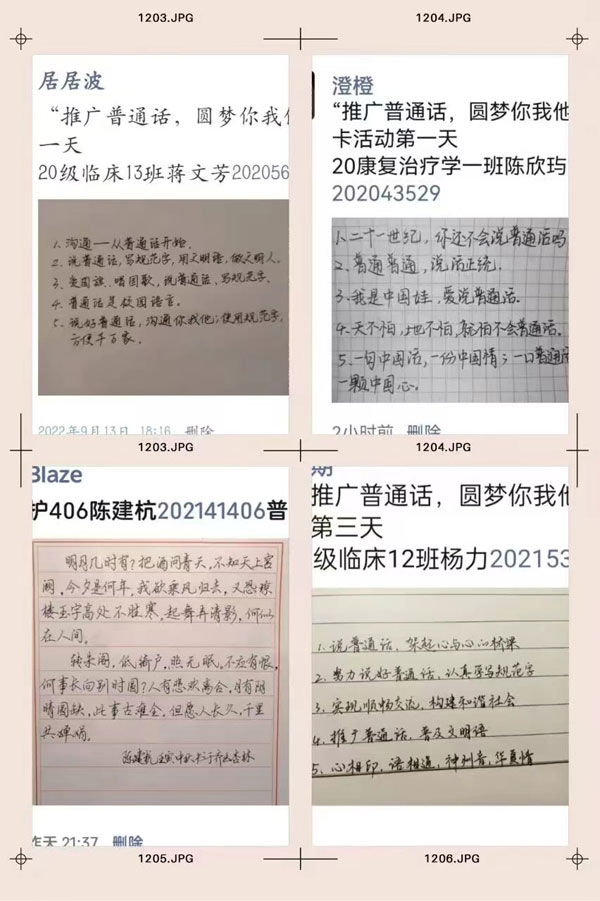 1203.JPG
1204.JPG
居居波
“推广普通话，圆梦你我
一天
20级临床13班蒋文芳202056
1. 沟通——从普通话开始.
2. 说普通话，写规范字，用文明语，做文明人.
3. 爱国旗、唱国歌，说普通话、写规范字、
4. 普通话是校园语言.
5. 说好普通话，沟通你我他；使用规范字，
方便千万家.
2022年9月13日 18:16 删除
澄橙
“推广普通话，圆梦你我他
卡活动第一天
20康复治疗学一班陈欣玙
202043529
1、二十一世纪，你还不会说普通话吗
2、普通普通，说话正统.
3、我是中国娃，爱说普通话.
4、天不怕，地不怕，就怕不会普通话.
5、一句中国话，一份中国情；一口普通话
一颗中国心.
2小时前 删除
1203.JPG
1204.JPG
Blaze
护406陈建杭202141406普
明月几时有？把酒问青天，不知天上宫
阙，今夕是何年，我欲乘风归去，又恐琼
楼玉宇高处不胜寒，起舞弄清影，何似
在人间。
转朱阁，低绮户，照无眠，不应有恨，
何事长向别时圆？人有悲欢离合，月有阴
晴圆缺，此事古难全，但愿人长久，千里
共婵娟。
昨天 21:37 删除
期
推广普通话，圆梦你我他
第三天
级临床12班杨力202153
1. 说普通话，架起心与心的桥梁
2、努力说好普通话、认真学写规范字
3、实现顺畅交流，构建和谐社会
4、推广普通话，普及文明语
5、心相印，语相通，神州音，华夏情
1205.JPG
1206.JPG